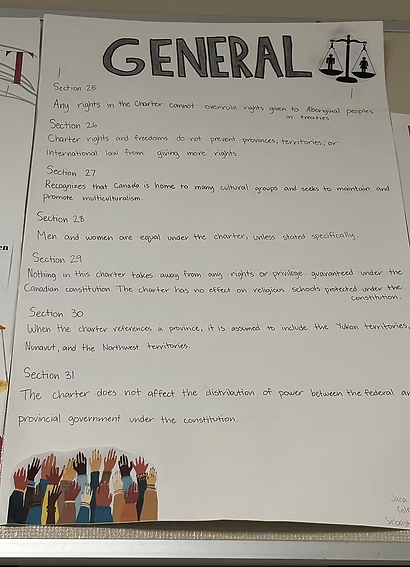 GENERAL
Section 25
Any rights in the Charter cannot overrule rights given to Aboriginal peoples
in treaties
Section 26
Charter rights and freedoms do not prevent provinces, territories, or
International law from giving more rights.
Section 27
Recognizes that Canada is home to many cultural groups and seeks to maintain and
promote multiculturalism.
Section 28
Men and women are equal under the charter, unless stated specifically
Section 29
Nothing in this charter takes away from any rights or privilege guaranteed under the
Canadian constitution. The charter has no effect on religious schools protected under the
constitution.
Section 30
When the charter references a province, it is assumed to include the Yukon territories,
Nunavut, and the Northwest territories.
Section 31
The charter does not affect the distribution of power between the federal an
provincial government under the constitution.